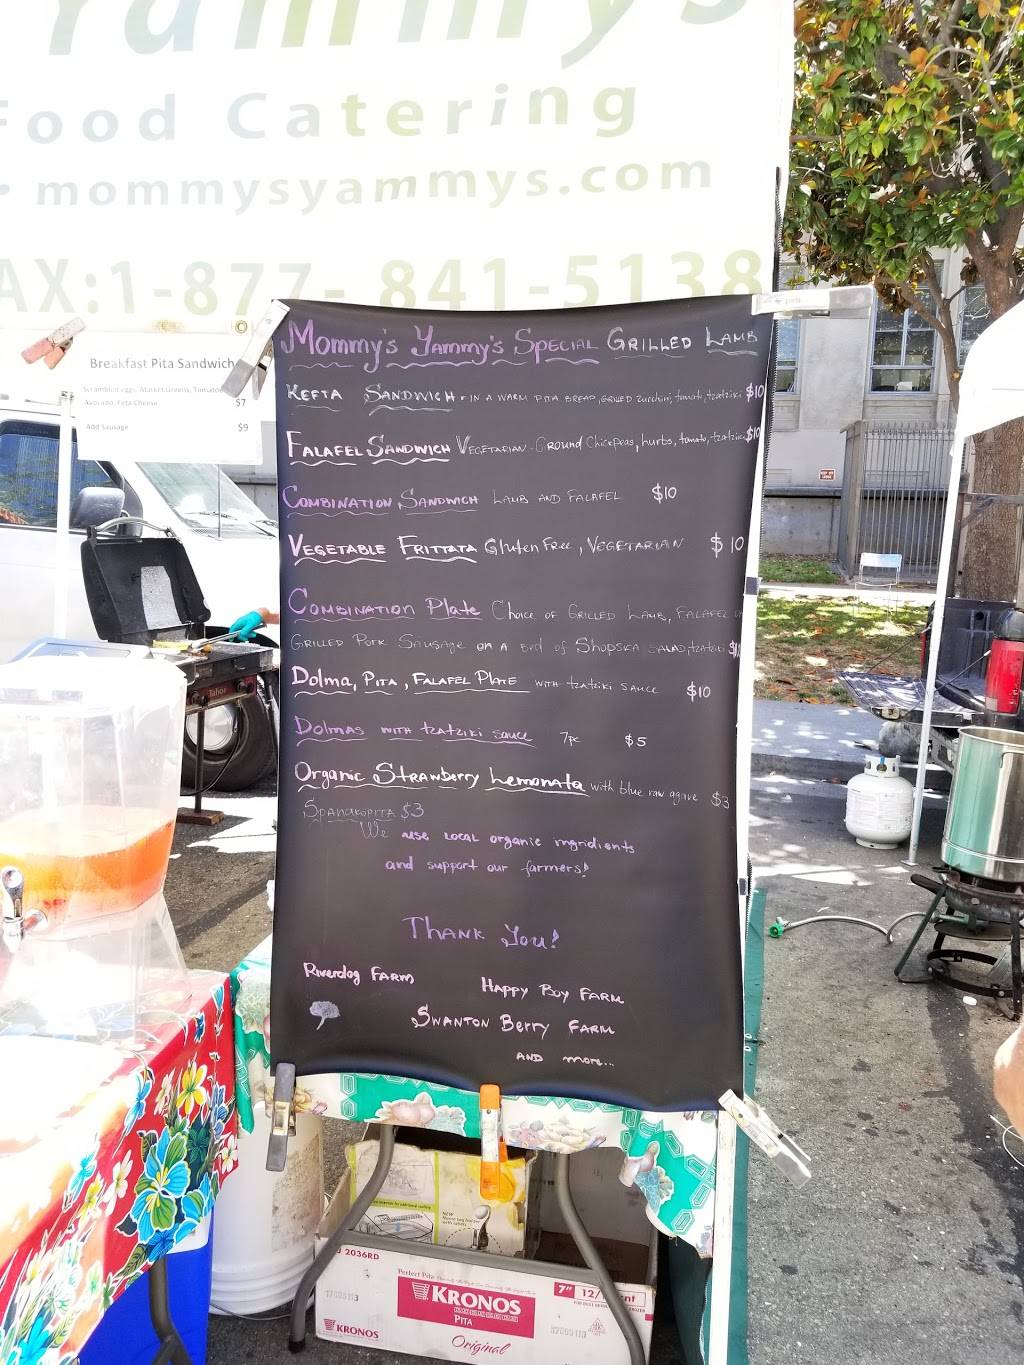 Yammys
Food Catering
• mommysyammys.com
AX:1-877- 841-5138
Breakfast Pita Sandwich
Scrambled eggs, Market Greens, Tomato
Avocado, Feta Cheese $7
Add Sausage $9
Mommy's Yammy's Special GRILLED LAMB
KEFTA SANDWICH - IN A WARM PITA BREAD, GRILLED zucchini, tomato, tzatziki $10
FALAFEL SANDWICH VEGETARIAN - Ground Chickpeas, hurbs, tomato, tzatziki $10
COMBINATION SANDWICH LAMB AND FALAFEL $10
VEGETABLE FRITTATA Gluten Free, VEGETARIAN $10
COMBINATION Plate Choice of GRILLED LAMB, FALAFEL or
GRILLED Pork Sausage on a bed of Shopska SALAD, tzatziki
Dolma, PITA, FALAFEL PLATE WITH tzatziki sauce $10
DOLMAS WITH tzatziki sauce 7pc $5
Organic Strawberry Lemonata with blue raw agave $3
SPANAKOPITA $3
We use LOCAL organic ingridients
and support our farmers!
THANK You!
Riverdog FARM
HAPPY Boy FARM
SWANTON Berry FARM
AND more...
Tahoe
2036RD
Perfect Pita
KRONOS
PITA
Original
7" 12/
KRONOS
NEW